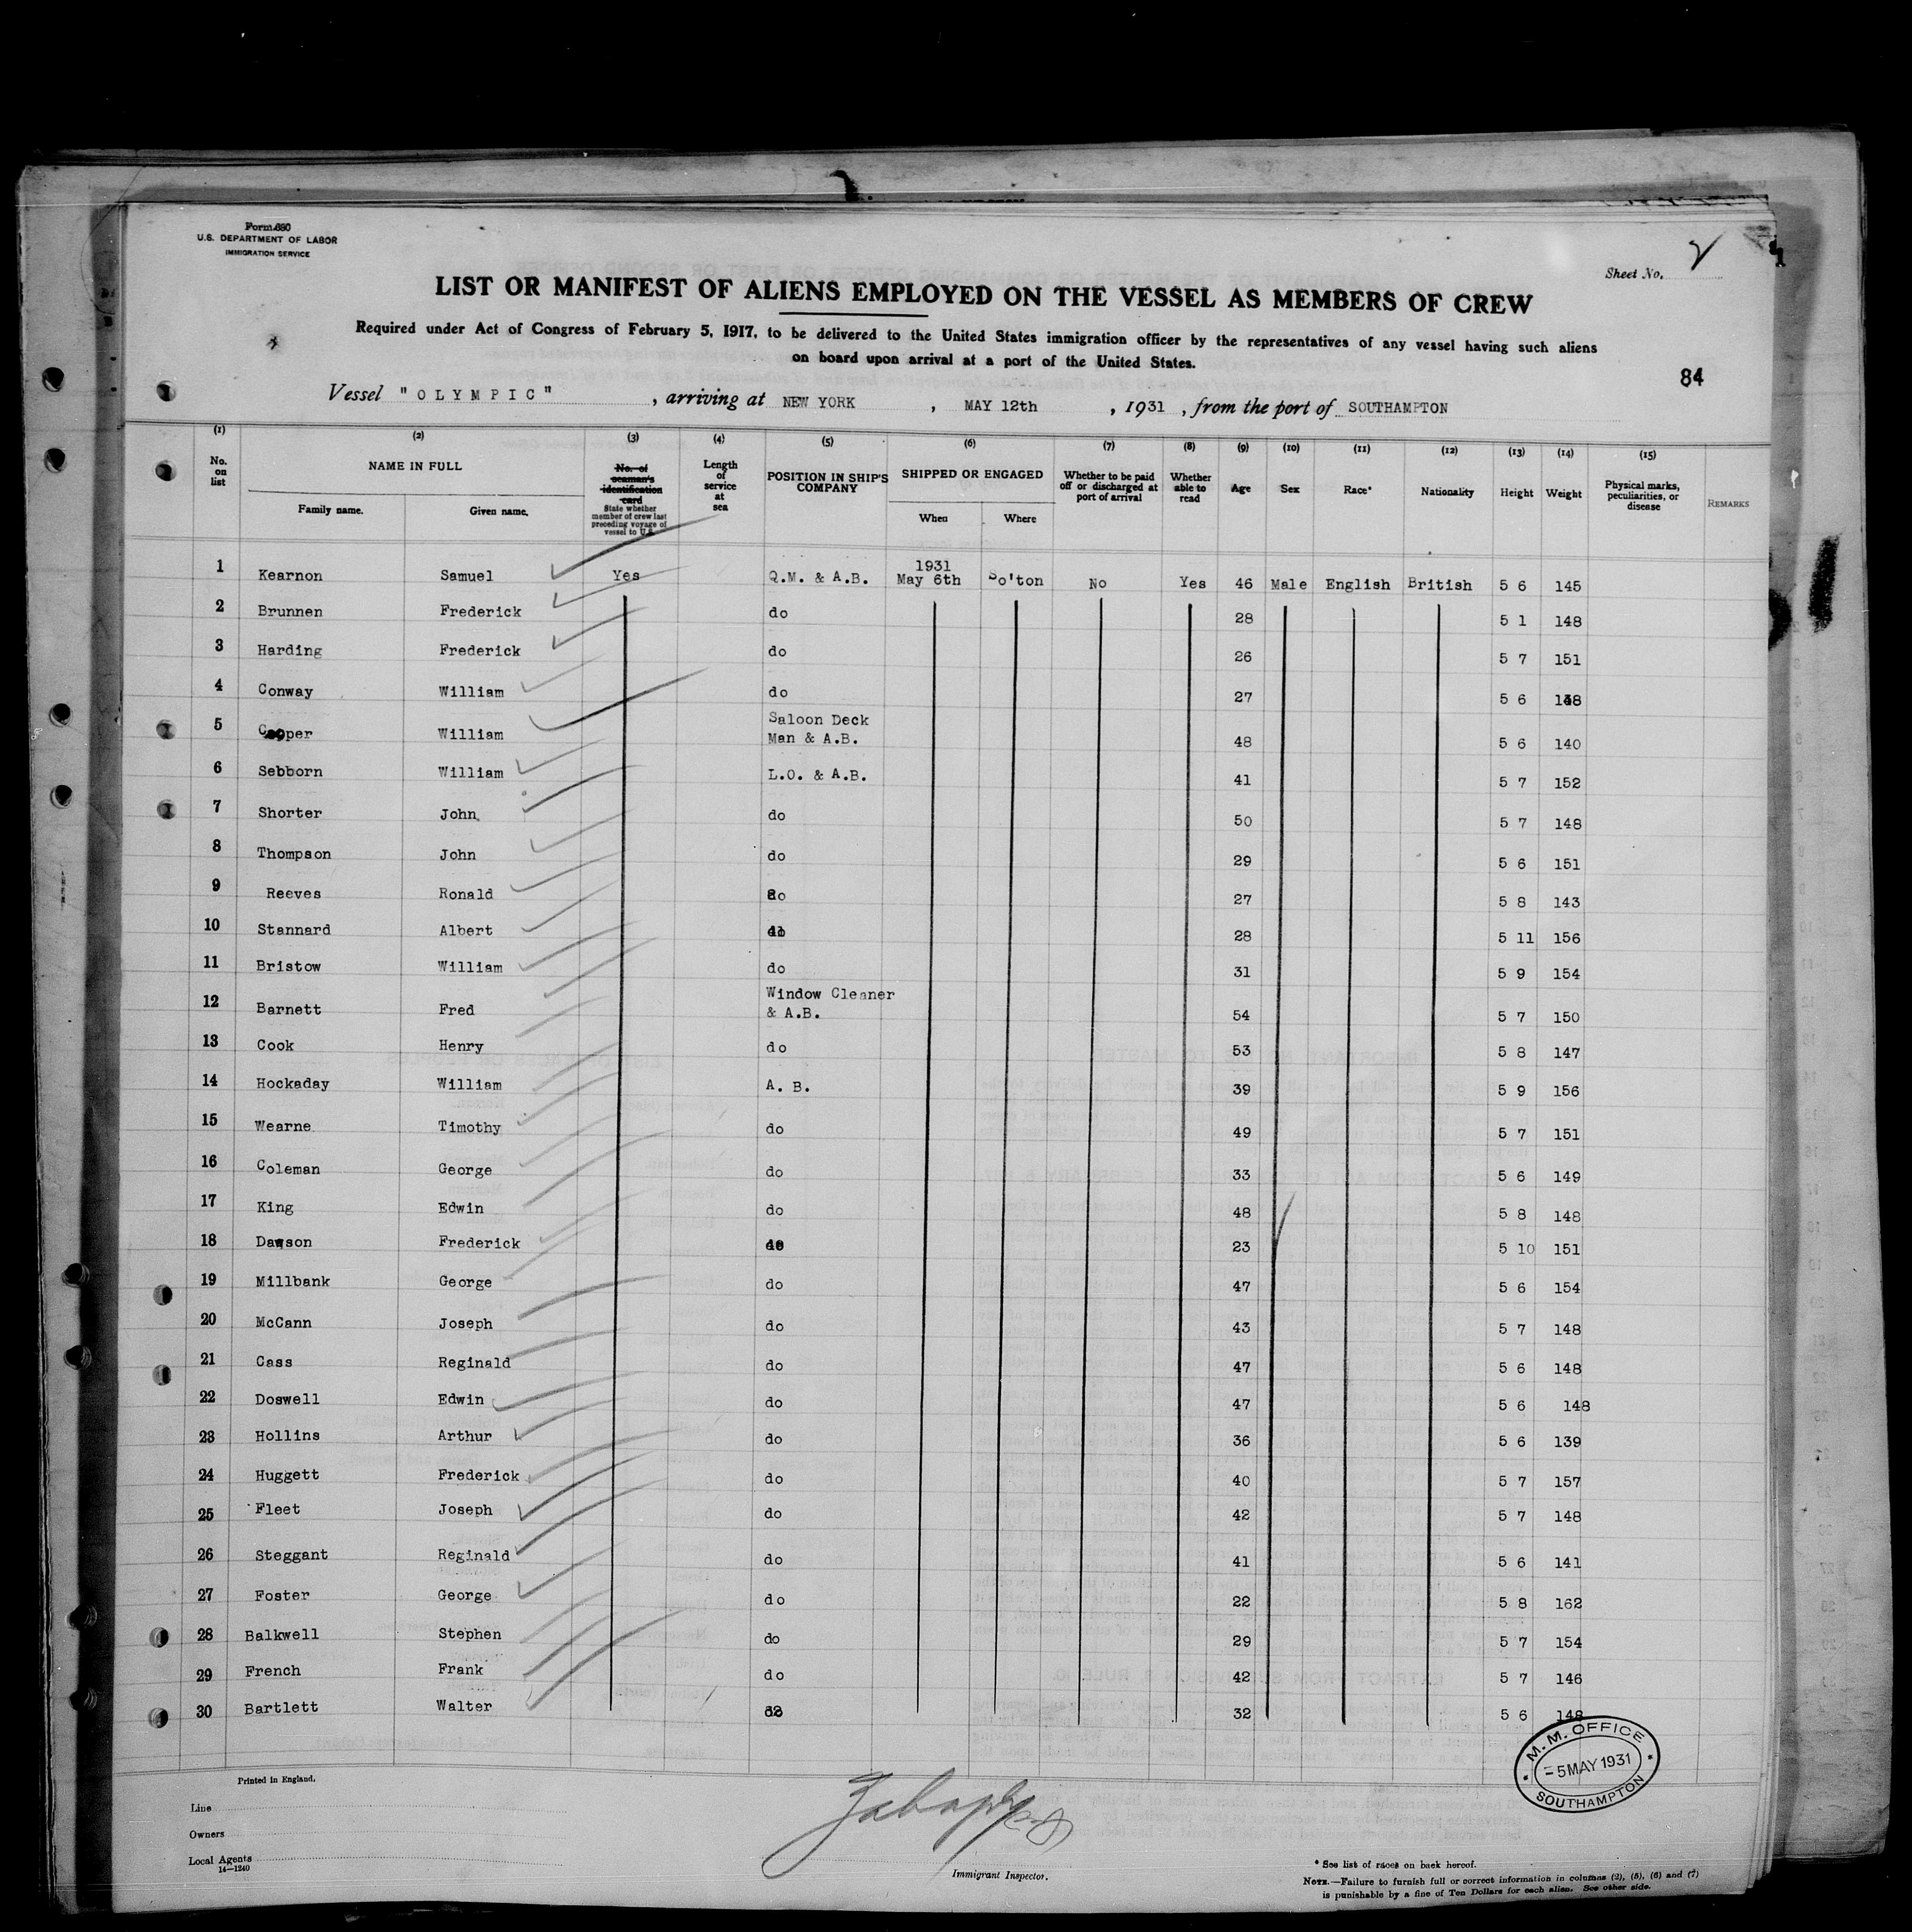 Form 680
U.S. DEPARTMENT OF LABOR
IMMIGRATION SERVICE
Sheet No. 2
LIST OR MANIFEST OF ALIENS EMPLOYED ON THE VESSEL AS MEMBERS OF CREW
Required under Act of Congress of February 5, 1917, to be delivered to the United States immigration officer by the representatives of any vessel having such aliens
on board upon arrival at a port of the United States.
84
Vessel "OLYMPIC", arriving at NEW YORK, MAY 12th, 1931, from the port of SOUTHAMPTON
(1) (2) (3) (4) (5) (6) (7) (8) (9) (10) (11) (12) (13) (14) (15)
No. on list
NAME IN FULL
Family name. Given name.
No. of seaman's identification card
State whether member of crew last preceding voyage of vessel to U.S.
Length of service at sea
POSITION IN SHIP'S COMPANY
SHIPPED OR ENGAGED
When Where
Whether to be paid off or discharged at port of arrival
Whether able to read
Age Sex Race* Nationality Height Weight
Physical marks, peculiarities, or disease
REMARKS
1 Kearnon Samuel Yes Q.M. & A.B. 1931 May 6th So'ton No Yes 46 Male English British 5 6 145
2 Brunnen Frederick do 28 5 1 148
3 Harding Frederick do 26 5 7 151
4 Conway William do 27 5 6 148
5 Cooper William Saloon Deck Man & A.B. 48 5 6 140
6 Sebborn William L.O. & A.B. 41 5 7 152
7 Shorter John do 50 5 7 148
8 Thompson John do 29 5 6 151
9 Reeves Ronald do 27 5 8 143
10 Stannard Albert do 28 5 11 156
11 Bristow William do 31 5 9 154
12 Barnett Fred Window Cleaner & A.B. 54 5 7 150
13 Cook Henry do 53 5 8 147
14 Hockaday William A. B. 39 5 9 156
15 Wearne Timothy do 49 5 7 151
16 Coleman George do 33 5 6 149
17 King Edwin do 48 5 8 148
18 Dawson Frederick do 23 5 10 151
19 Millbank George do 47 5 6 154
20 McCann Joseph do 43 5 7 148
21 Cass Reginald do 47 5 6 148
22 Doswell Edwin do 47 5 6 148
23 Hollins Arthur do 36 5 6 139
24 Huggett Frederick do 40 5 7 157
25 Fleet Joseph do 42 5 7 148
26 Steggant Reginald do 41 5 6 141
27 Foster George do 22 5 8 162
28 Balkwell Stephen do 29 5 7 154
29 French Frank do 42 5 7 146
30 Bartlett Walter do 32 5 6 148
M.M. OFFICE
5 MAY 1931
SOUTHAMPTON
Printed in England.
Line
Owners
Local Agents
14—1240
Immigrant Inspector.
* See list of races on back hereof.
NOTE.—Failure to furnish full or correct information in columns (2), (5), (6) and (7)
is punishable by a fine of Ten Dollars for each alien. See other side.